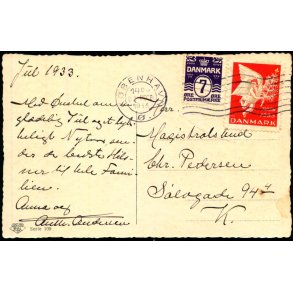 Jul 1933.
Med Ønsket om en
glædelig Jul og et lyk-
keligt Nytaar sen-
der de bedste Hils-
ner til hele Fami-
lien.
Anna og
Anth. Andersen
Serie 100
KØBENHAVN
DANMARK
7
ØRE ØRE
POSTFÆRGE
DANMARK
Magistratsfuld
Chr. Pedersen
Sølvgade 94
K.